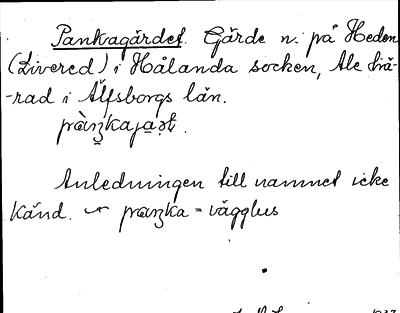 Pankagärdet. Gärde n. på Heden
(Livered) i Hålanda socken, Ale hä-
-rad i Älfsborgs län.
Anledningen till namnet icke
känd. ~ paŋka = vägglus